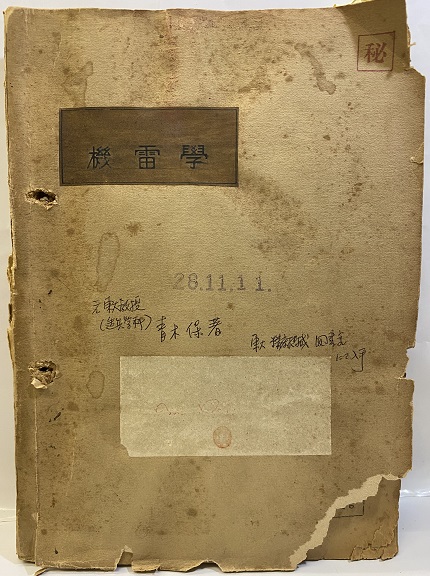 秘
機雷學
28.11.11.
元東大教授
(造兵学科) 青木保著
東大